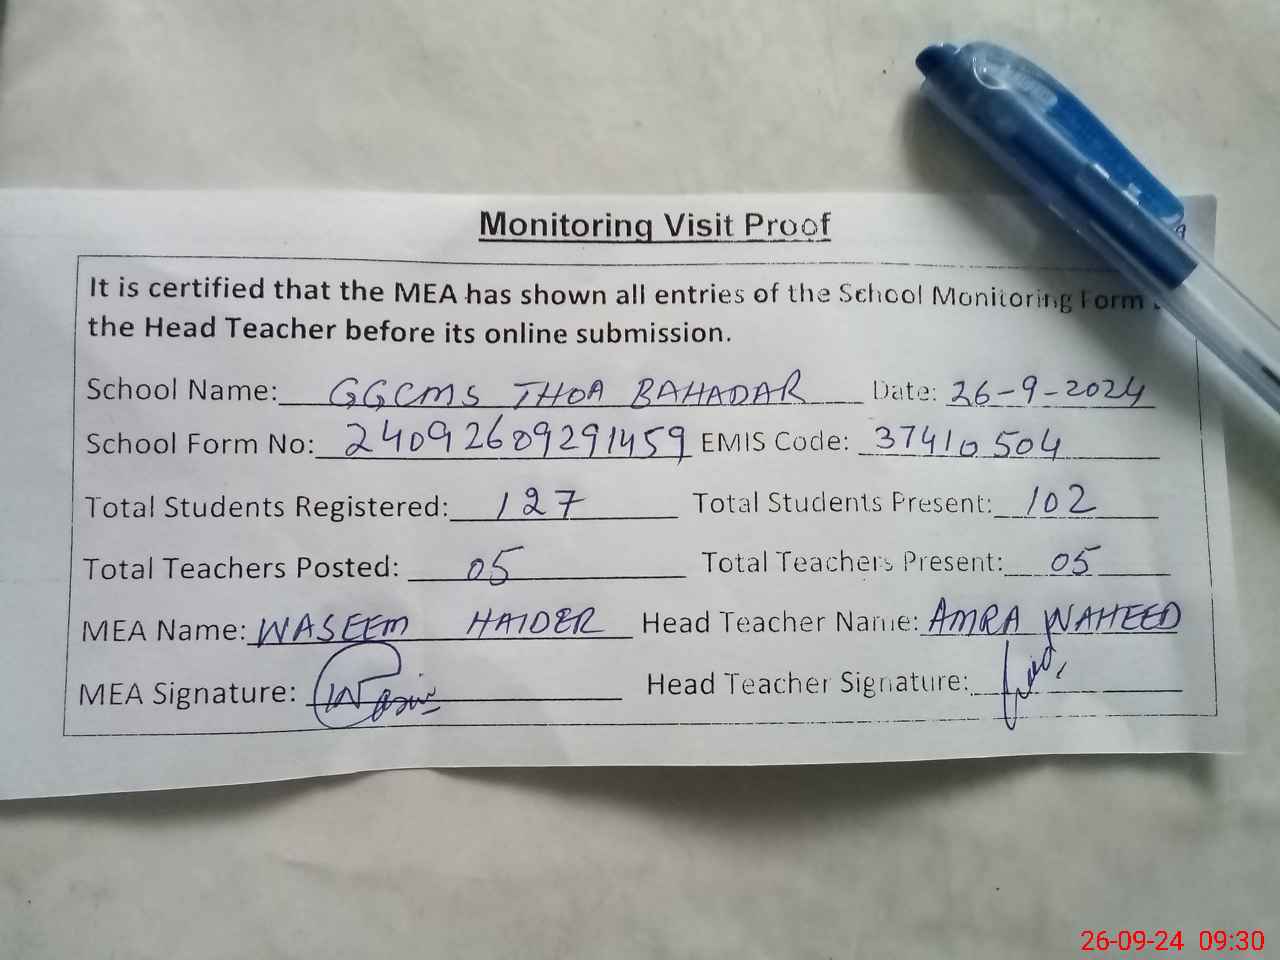 Monitoring Visit Proof
It is certified that the MEA has shown all entries of the School Monitoring Form
the Head Teacher before its online submission.
School Name: GGCMS THOA BAHADAR Date: 26-9-2024
School Form No: 24092609291459 EMIS Code: 37410504
Total Students Registered: 127 Total Students Present: 102
Total Teachers Posted: 05 Total Teachers Present: 05
MEA Name: WASEEM HAIDER Head Teacher Name: AMRA WAHEED
MEA Signature: Head Teacher Signature:
26-09-24 09:30